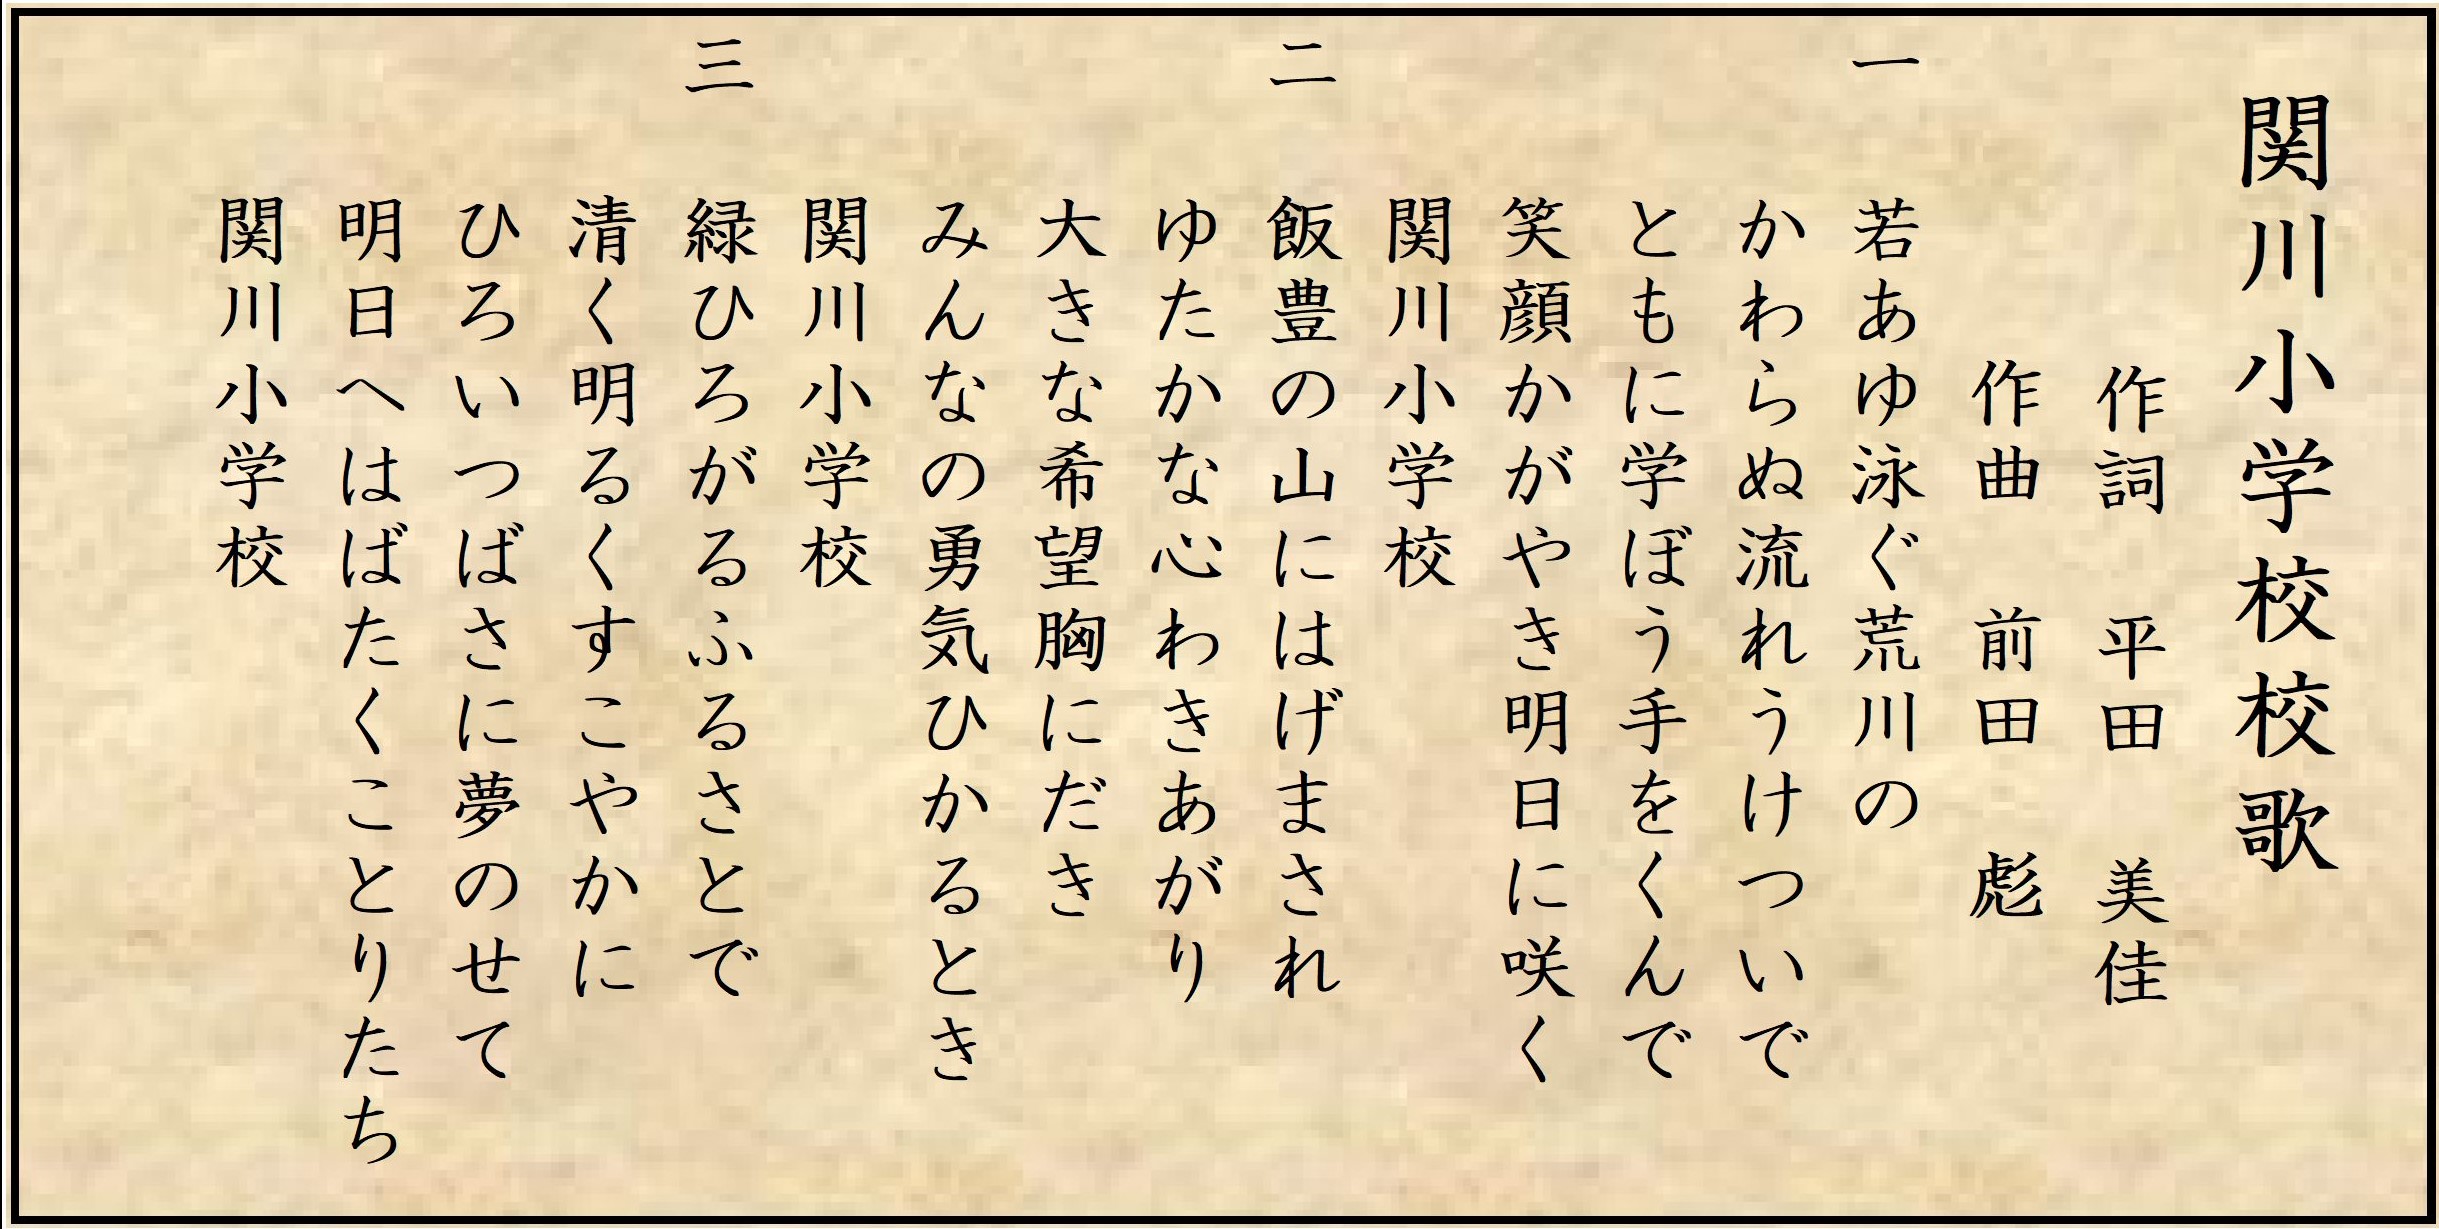 関川小学校校歌
作詞 平田 美佳
作曲 前田 彪
一 若あゆ泳ぐ荒川の
かわらぬ流れうけついで
ともに学ぼう手をくんで
笑顔かがやき明日に咲く
関川小学校
二 飯豊の山にはげまされ
ゆたかな心わきあがり
大きな希望胸にだき
みんなの勇気ひかるとき
関川小学校
三 緑ひろがるふるさとで
清く明るくすこやかに
ひろいつばさに夢のせて
明日へはばたくことりたち
関川小学校